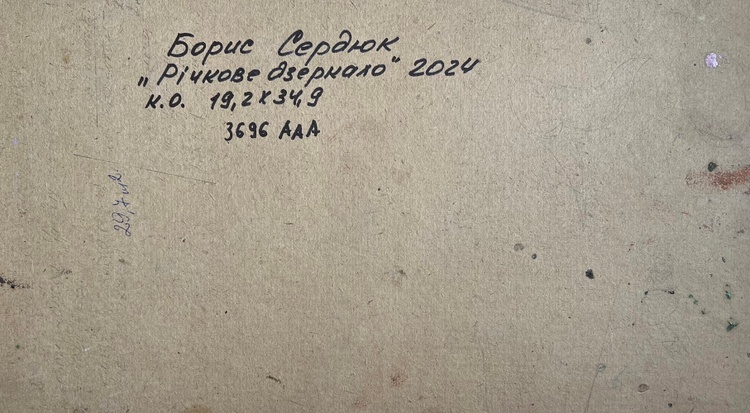 Борис Сердюк
„Річкове дзеркало“ 2024
к.о. 19,2х34,9
3696 АДА
29,7 м²